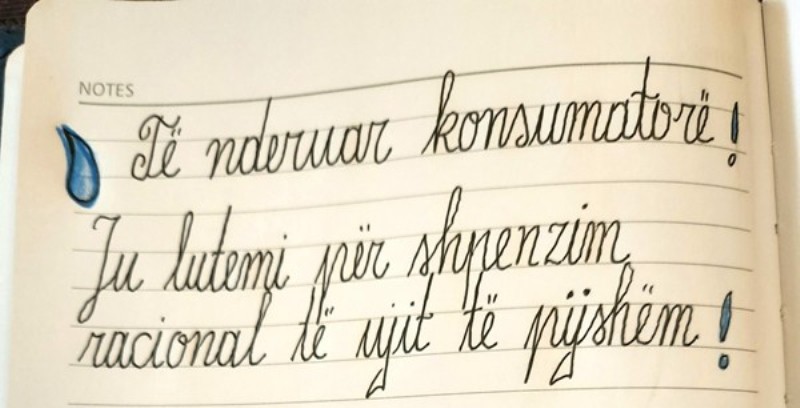 NOTES
Të nderuar konsumatorë!
Ju lutemi për shpenzim
racional të ujit të pijshëm!